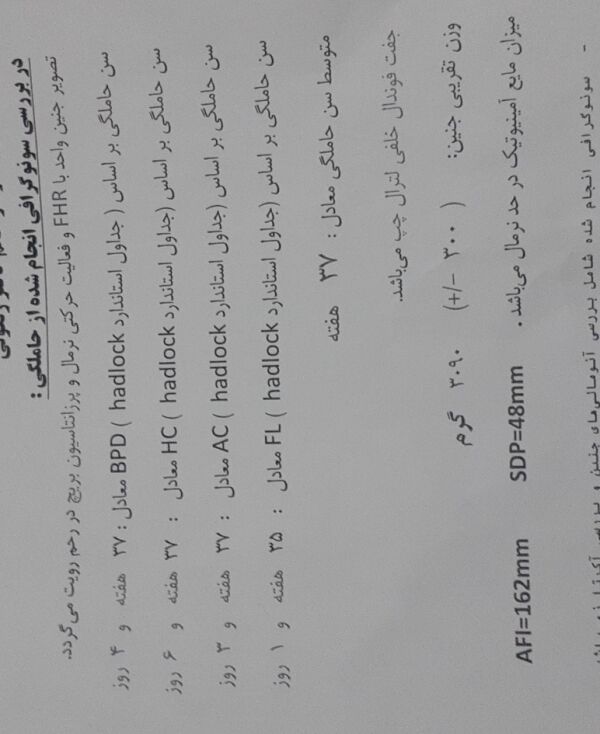 در بررسی سونوگرافی انجام شده از حاملگی :
تصویر جنین واحد با FHR و فعالیت حرکتی نرمال و پرزانتاسیون بریچ در رحم رویت می گردد.
سن حاملگی بر اساس ( جداول استاندارد hadlock ) BPD معادل : ۳۷ هفته و ۴ روز
سن حاملگی بر اساس (جداول استاندارد hadlock ) HC معادل : ۳۷ هفته و ۶ روز
سن حاملگی بر اساس (جداول استاندارد hadlock ) AC معادل : ۳۷ هفته و ۳ روز
سن حاملگی بر اساس (جداول استاندارد hadlock ) FL معادل : ۳۵ هفته و ۱ روز
متوسط سن حاملگی معادل : ۳۷ هفته
جفت فوندال خلفی لترال چپ می‌باشد.
وزن تقریبی جنین: ۳۰۹۰ گرم (+/- ۳۰۰ )
میزان مایع آمینیوتیک در حد نرمال می‌باشد . SDP=48mm AFI=162mm
- سونوگرافی انجام شده شامل بررسی آنومالی‌های جنین و بررسی